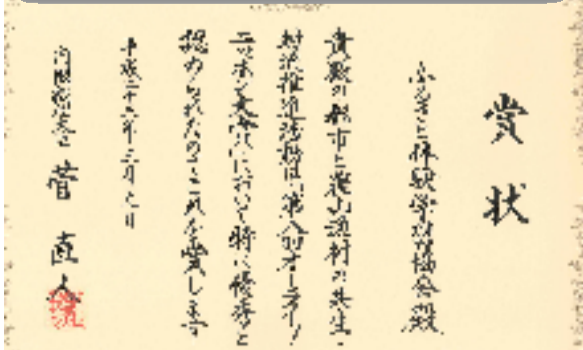 賞状
ふるさと体験学習協会殿
貴殿の都市と農山漁村の共生・
対流推進活動は、第八回オーライ!
ニッポン大賞において特に優秀と
認められたのでこれを賞します
平成二十三年三月七日
内閣総理大臣 菅 直人